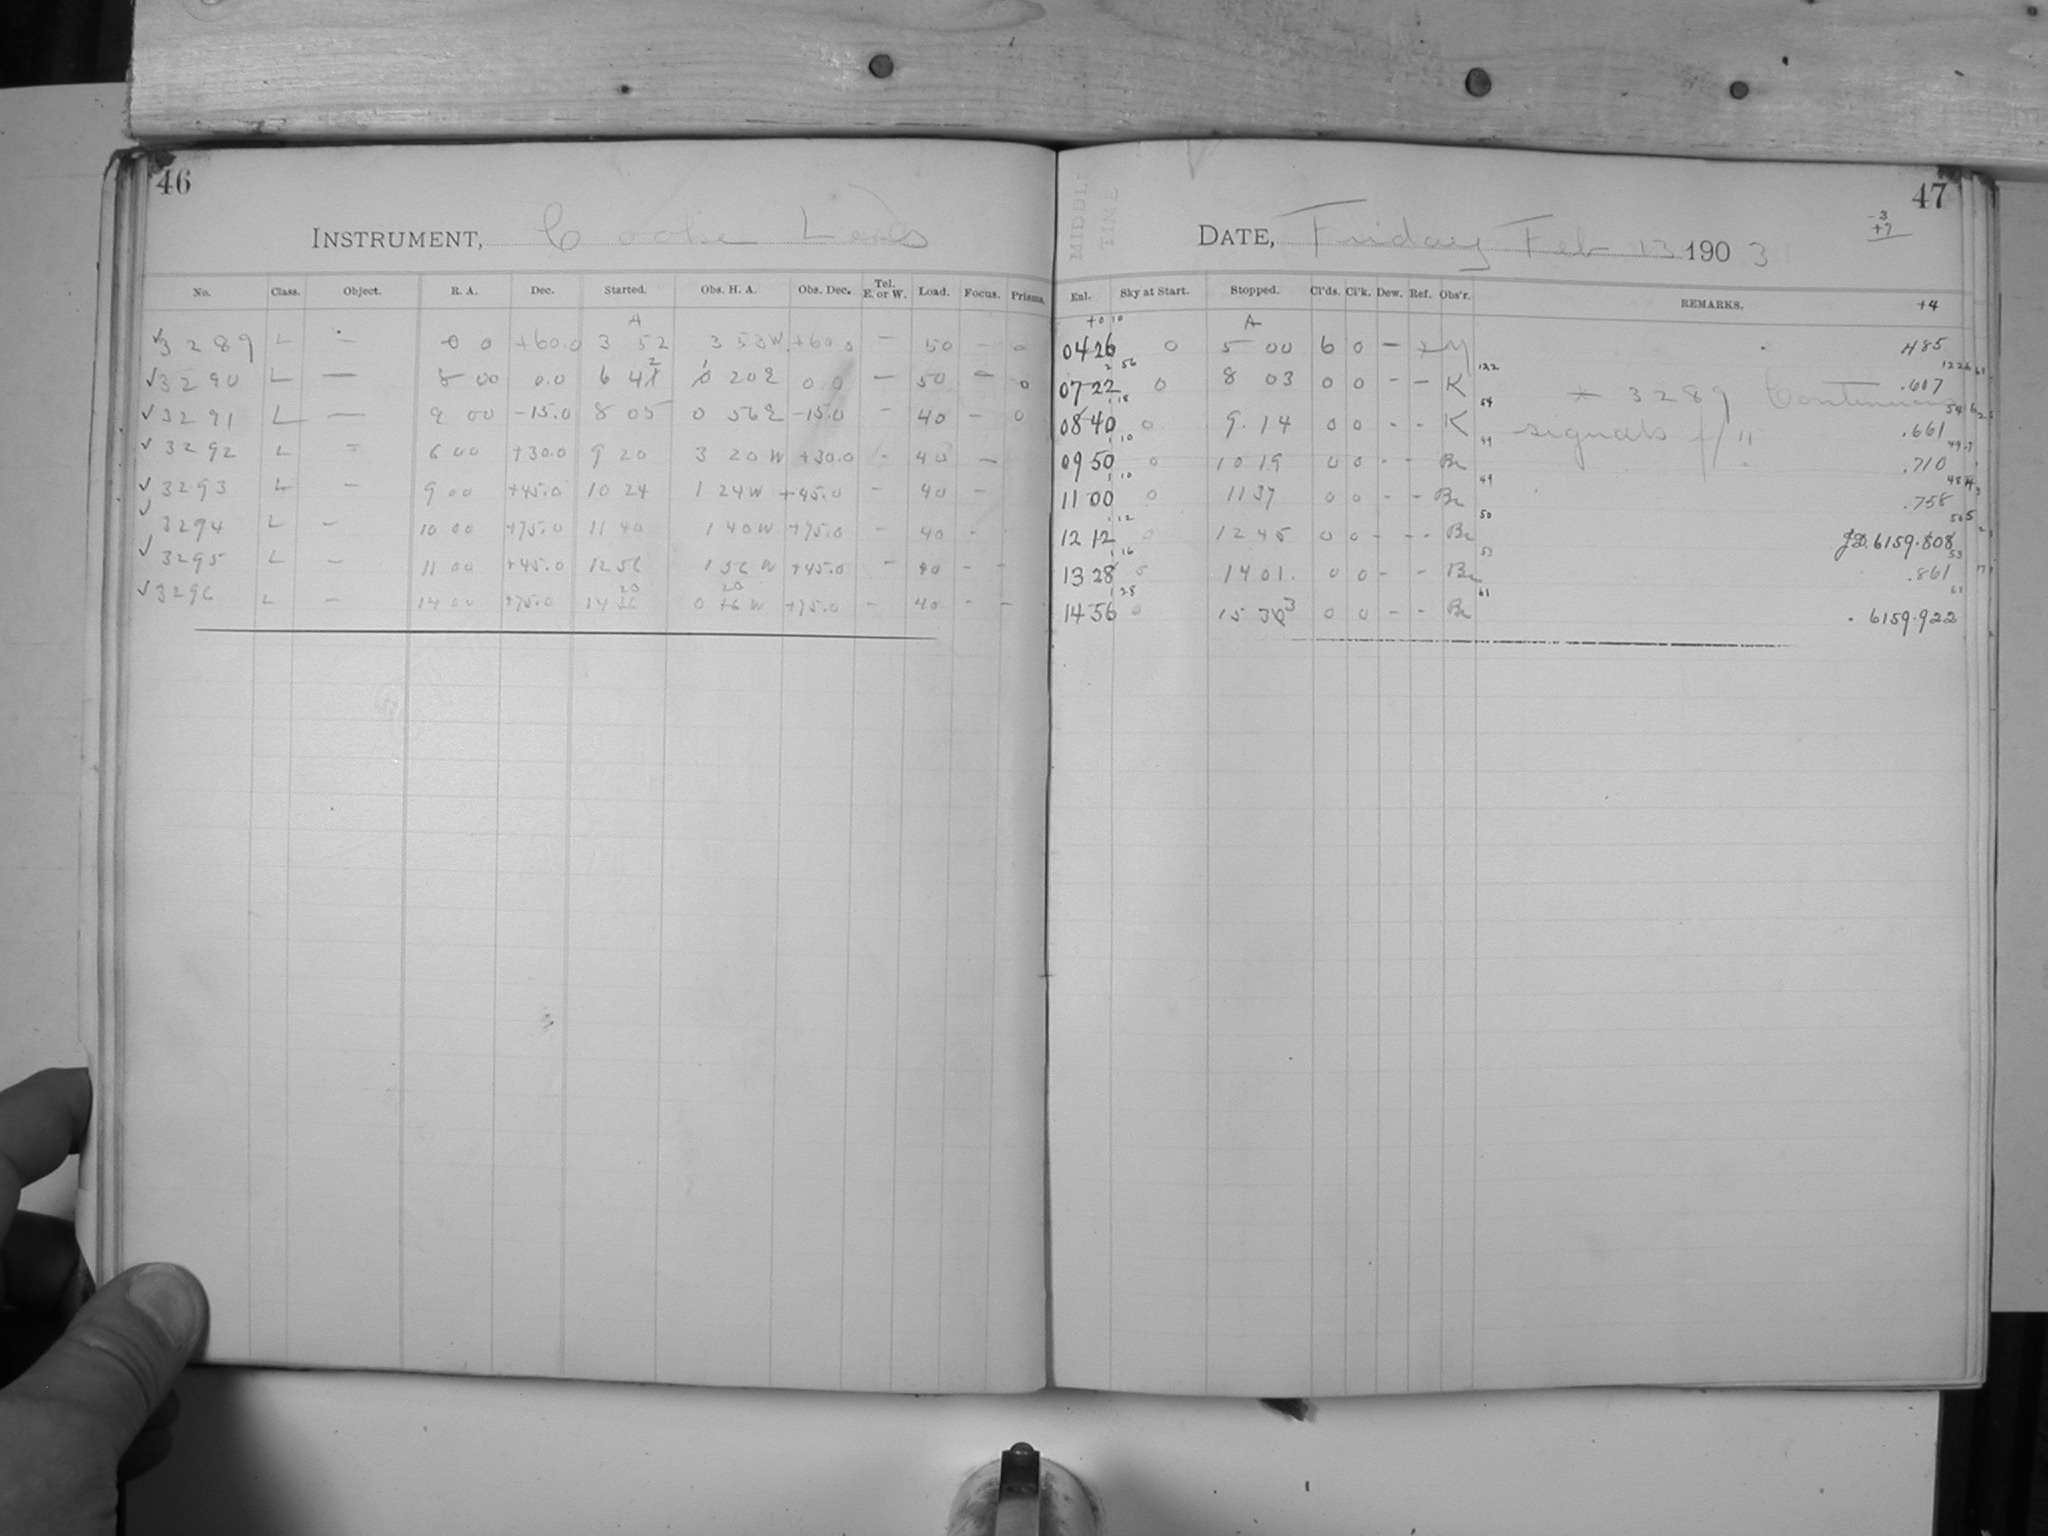 46
INSTRUMENT, Cooke Lens
No. Class. Object. R. A. Dec. Started. Obs. H. A. Obs. Dec. Tel. E. or W. Load. Focus. Prisms.
A
✓3289 L — 0 0 +60.0 3 52 3 53W +60.0 — 50 — 0
✓3290 L — 00 0.0 6 42 0 20E 0.0 — 50 — 0
✓3291 L — 9 00 -15.0 8 05 0 56E -15.0 - 40 - 0
✓3292 L = 6 00 +30.0 9 20 3 20 W +30.0 - 40 —
✓3293 L — 9 00 +45.0 10 24 1 24W +45.0 - 40 -
✓3294 L — 10 00 +75.0 11 40 1 40W +75.0 - 40 -
✓3295 L — 11 00 +45.0 12 56 1 56 W +45.0 - 40 - -
✓3296 L — 14 00 +75.0 14 20 0 20 W +75.0 - 40 - -
47
MIDDLE TIME
DATE, Friday Feb 13 1903
-3
+7
Enl. Sky at Start. Stopped. Cl'ds. Cl'k. Dew. Ref. Obs'r. REMARKS. +4
+0 10 A
0426 0 5 00 6 0 — M .485
2 56 122
0722 0 8 03 0 0 - - K * 3289 Continuous .607
1 18 54
0840 0 9.14 0 0 - - K signals .661
1 10 49
0950 0 10 19 0 0 - - Bc .710
1 10 49
1100 0 11 37 0 0 - - Bc .758
1 12 50
1212 0 12 45 0 0 - - - Bc J.D. 6159.808
1 16 53
1328 0 14 01. 0 0 - - Bc .861
1 28 61
1456 0 15 33 0 0 - - Bc 6159.922